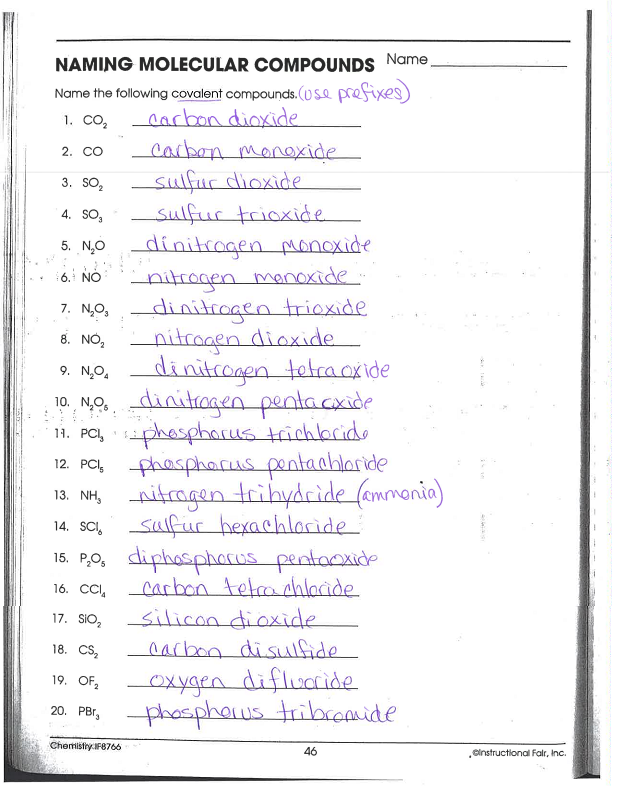 NAMING MOLECULAR COMPOUNDS Name
Name the following covalent compounds. (use prefixes)
1. CO₂ carbon dioxide
2. CO carbon monoxide
3. SO₂ sulfur dioxide
4. SO₃ sulfur trioxide
5. N₂O dinitrogen monoxide
6. NO nitrogen monoxide
7. N₂O₃ dinitrogen trioxide
8. NO₂ nitrogen dioxide
9. N₂O₄ dinitrogen tetraoxide
10. N₂O₅ dinitrogen pentaoxide
11. PCl₃ phosphorus trichloride
12. PCl₅ phosphorus pentachloride
13. NH₃ nitrogen trihydride (ammonia)
14. SCl₆ sulfur hexachloride
15. P₂O₅ diphosphorus pentaoxide
16. CCl₄ carbon tetrachloride
17. SiO₂ silicon dioxide
18. CS₂ carbon disulfide
19. OF₂ oxygen difluoride
20. PBr₃ phosphorus tribromide
Chemistry IF8766 46 ©Instructional Fair, Inc.